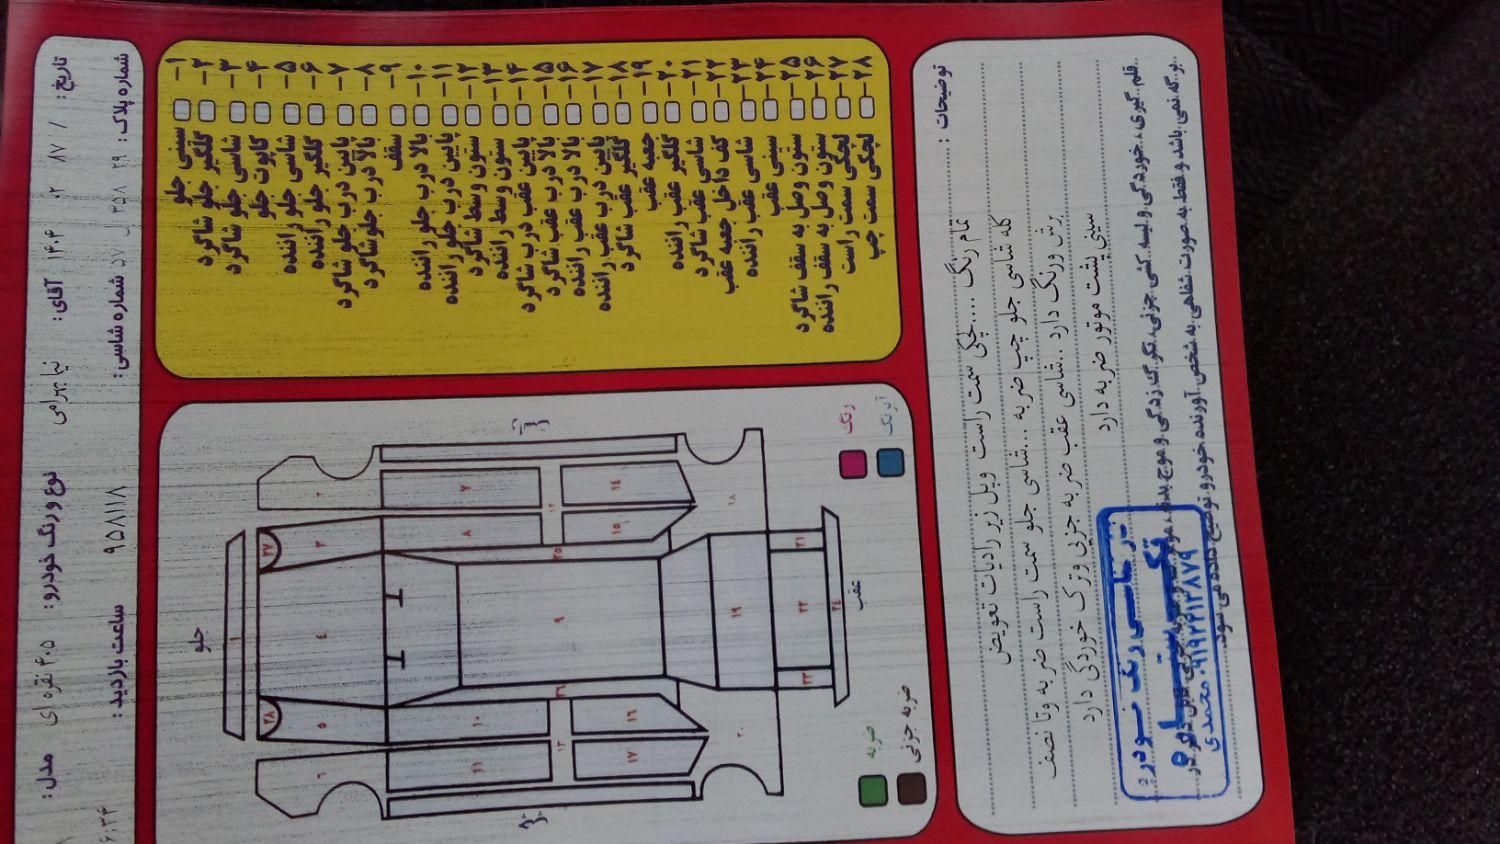 تاریخ: / ۸۷ ۰۲ ۱۴۰۴ آقای: نیا بهرامی نوع و رنگ خودرو: ۴۰۵ نقره ای مدل:
شماره پلاک: ۲۹ ۳۵۸ ل ۵۷ شماره شاسی: ۹۵۸۱۱۸ ساعت بازدید: ۶:۳۴
۱- سینی جلو
۲- گلگیر جلو شاگرد
۳- شاسی جلو شاگرد
۴- کاپوت جلو
۵- شاسی جلو راننده
۶- گلگیر جلو راننده
۷- پایین درب جلو شاگرد
۸- بالا درب جلو شاگرد
۹- سقف
۱۰- بالا درب جلو راننده
۱۱- پایین درب جلو راننده
۱۲- ستون وسط شاگرد
۱۳- ستون وسط راننده
۱۴- پایین عقب درب شاگرد
۱۵- بالا درب عقب شاگرد
۱۶- بالا درب عقب راننده
۱۷- پایین درب عقب راننده
۱۸- گلگیر عقب شاگرد
۱۹- جعبه عقب
۲۰- گلگیر عقب راننده
۲۱- شاسی عقب شاگرد
۲۲- کف داخل جعبه عقب
۲۳- شاسی عقب راننده
۲۴- سینی عقب
۲۵- ستون وصل به سقف شاگرد
۲۶- ستون وصل به سقف راننده
۲۷- لچکی سمت راست
۲۸- لچکی سمت چپ
جلو
۲ ۷ ۱۴ ۱۸
۲۷ ۳ ۸ ۱۲ ۱۵
۲۵ ۲۱
۱ ۴ ۹ ۱۹ ۲۲ ۲۴
۲۶ ۲۳
۲۸ ۵ ۱۰ ۱۳ ۱۶
۶ ۱۱ ۱۷ ۲۰
عقب
رنگ
آبرنگ
ضربه
ضربه جزئی
توضیحات:
تمام رنگ ....لچکی سمت راست وبل زیر رادیات تعویض
کله شاسی جلو چپ ضربه ...شاسی جلو سمت راست ضربه وتا نصف
برش ورنگ دارد ..شاسی عقب ضربه جزیی وترک خوردگی دارد
سینی پشت موتور ضربه دارد
قلم گیری، خوردگی و لیسه کشی جزئی، تگرگ زدگی و موج بدنه،
برگه نمی باشد و فقط به صورت شفاهی به شخص آورنده خودرو توضیح داده می شود.
کارشناسی رنگ خودرو
تک ستاره
محمدی ۰۹۱۹۲۲۱۲۸۷۹